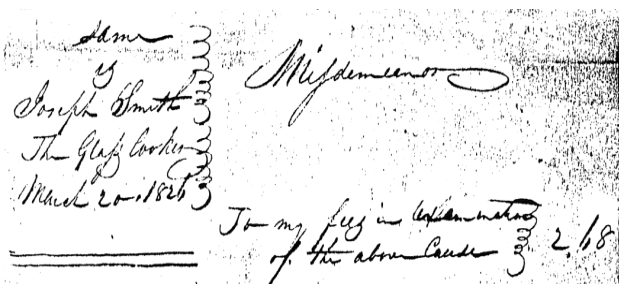 same
vs
Joseph Smith
The Glass Looker
March 20, 1826
Misdemeanor
To my fees in examination
of the above Cause
2.68